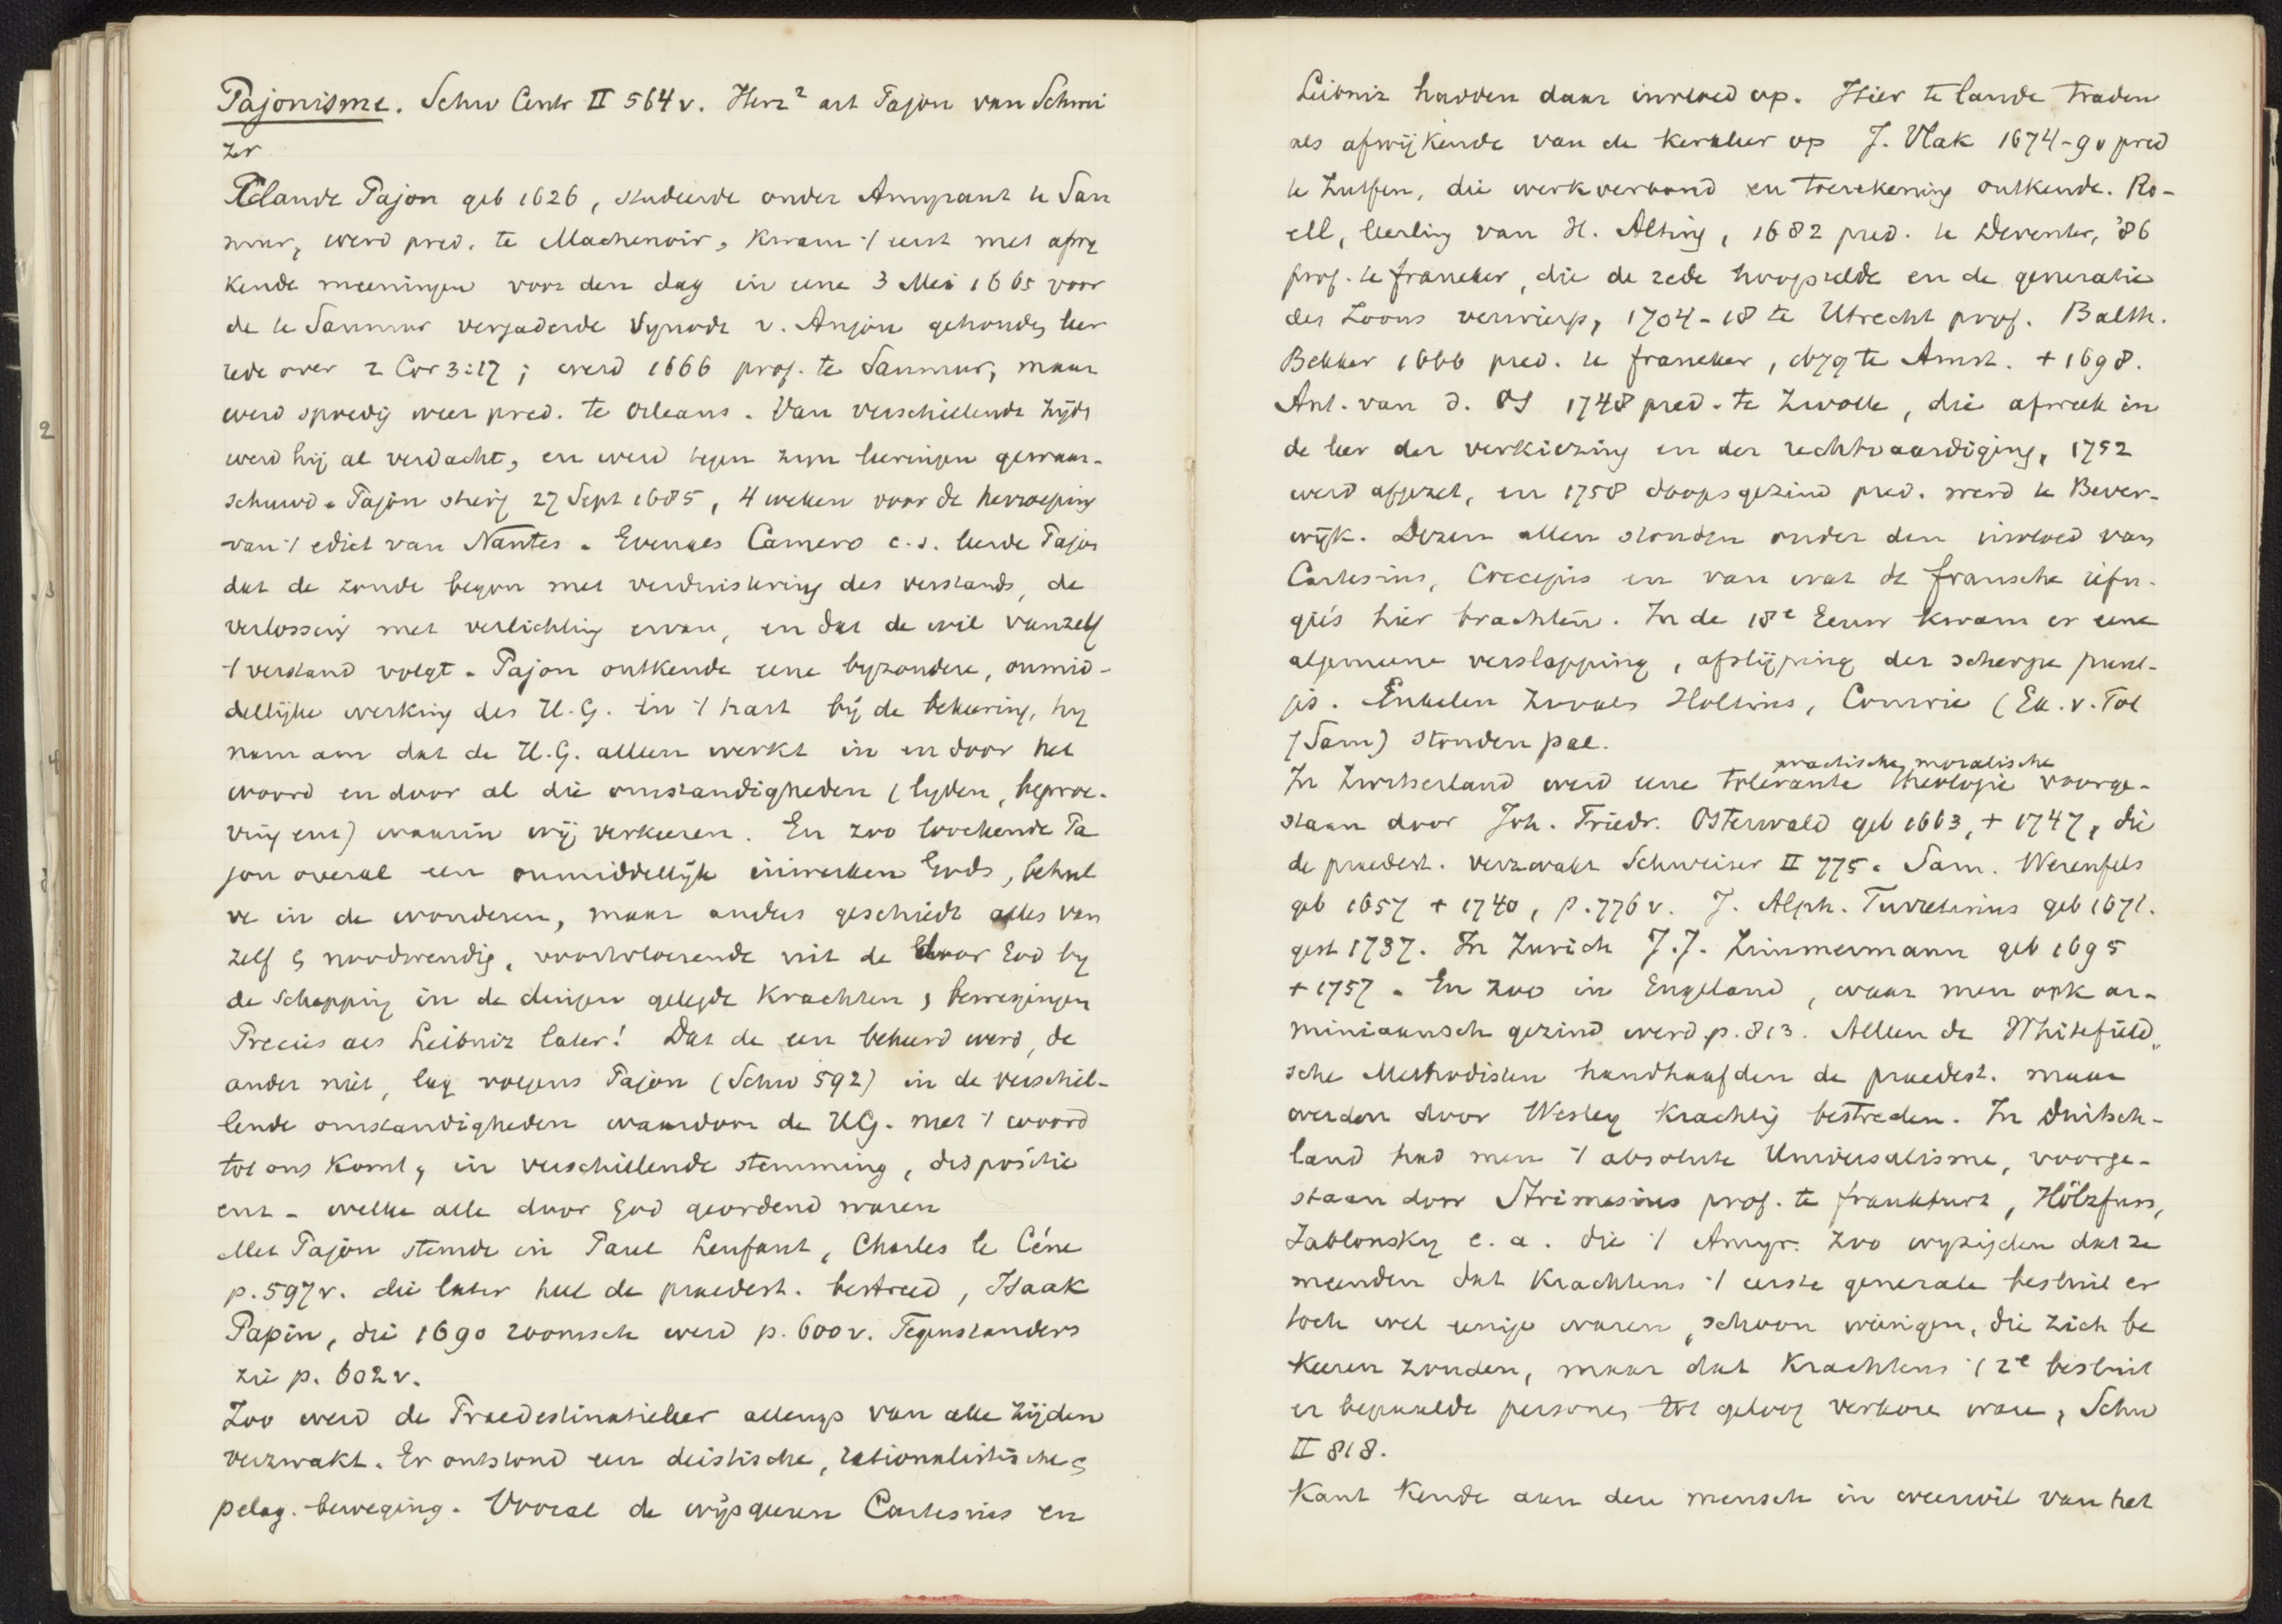 Pajonisme. Schw Centr II 564v. Herz² art Pajon van Schwei
zer
Claude Pajon geb 1626, studeerde onder Amyraut te Sau
mur, werd pred. te Machenoir, kwam 't eerst met afwy
kende meeningen voor den dag in eene 3 Mei 1665 voor
de te Saumur vergaderde Synode v. Anjou gehouden leer
rede over 2 Cor 3:17; werd 1666 prof. te Saumur, maar
werd spoedig weer pred. te Orleans. Van verschillende zijde
werd hij al verdacht, en werd tegen zijn leeringen gewaar-
schuwd. Pajon stierf 27 Sept 1685, 4 weken voor de herroeping
van 't edict van Nantes. Evenals Camero c.s. leerde Pajon
dat de zonde begon met verduistering des verstands, de
verlossing met verlichting ervan, en dat de wil vanzelf
't verstand volgt. Pajon ontkende eene byzondere, onmid-
dellijke werking des H.G. in 't hart bij de bekeering, hy
nam aan dat de H.G. alleen werkt in en door het
woord en door al die omstandigheden (lyden, beproe-
ving enz) waarin wij verkeeren. En zoo loochende Pa
jon overal een onmiddellijk inwerken Gods, behal
ve in de wonderen, maar anders geschiedt alles van
zelf & noodwendig, voortvloeiende uit de door God by
de Schepping in de dingen gelegde krachten & bewegingen
Precies als Leibniz later! Dat de een bekeerd werd, de
ander niet, lag volgens Pajon (Schw 592) in de verschil-
lende omstandigheden waardoor de HG. met 't woord
tot ons komt, in verschillende stemming, dispositie
enz - welke alle door God geordend waren
Met Pajon stemde in Paul Lenfant, Charles le Céne
p. 597v. die later heel de praedest. bestreed, Isaak
Papin, die 1690 roomsch werd p. 600v. Tegenstanders
zie p. 602v.
Zoo werd de Praedestinatieleer allengs van alle zijden
verzwakt. Er ontstond een deistische, rationalistische &
pelag. beweging. Vooral de wijsgeeren Cartesius en
Leibniz hadden daar invloed op. Hier te lande traden
als afwijkende van de kerkleer op J. Vlak 1674-90 pred
te Zutfen, die werkverbond en toerekening ontkende. Ro-
ell, leerling van H. Alting, 1682 pred. te Deventer, '86
prof. te franeker, die de rede hoogstelde en de generatie
des Zoons verwierp, 1704-18 te Utrecht prof. Balth.
Bekker 1666 pred. te franeker, 1679 te Amst. + 1698.
Ant. van d. Os 1748 pred. te Zwolle, die afweek in
de leer der verkiezing en der rechtvaardiging, 1752
werd afgezet, en 1758 doopsgezind pred. werd te Bever-
wijk. Dezen allen stonden onder den invloed van
Cartesius, Coccejus en van wat de fransche réfu-
giés hier brachten. In de 18e Eeuw kwam er eene
algemeene verslapping, afslijping der scherpe punt-
jes. Enkelen zooals Holtius, Comrie (Ex. v. Tol
(Sam) stonden pal.
practische, moralische
In Zwitserland werd eene tolerante theologie voorge-
staan door Joh. Friedr. Osterwald geb 1663, + 1747, die
de praedest. verzwakt Schweiser II 775. Sam. Werenfels
geb 1657 + 1740, p. 776v. J. Alph. Turretinus geb 1671.
gest 1737. In Zurich J.J. Zimmermann geb 1695
+ 1757. En zoo in Engeland, waar men ook ar-
miniaansch gezind werd p. 813. Alleen de Whitefield„
sche Methodisten handhaafden de praedest. maar
werden door Wesley krachtig bestreden. In Duitsch-
land had men 't absolute Universalisme, voorge-
staan door Strimesius prof. te frankfurt, Hölzfuss,
Jablonsky e.a. die 't Amyr. zoo wyzigden dat ze
meenden dat krachtens 't eerste generale besluit er
toch wel eenige waren, schoon weinigen, die zich be
keeren zouden, maar dat krachtens 't 2e besluit
er bepaalde personen tot geloof verkoren waren, Schw
II 818.
Kant kende aan den mensch in weerwil van het